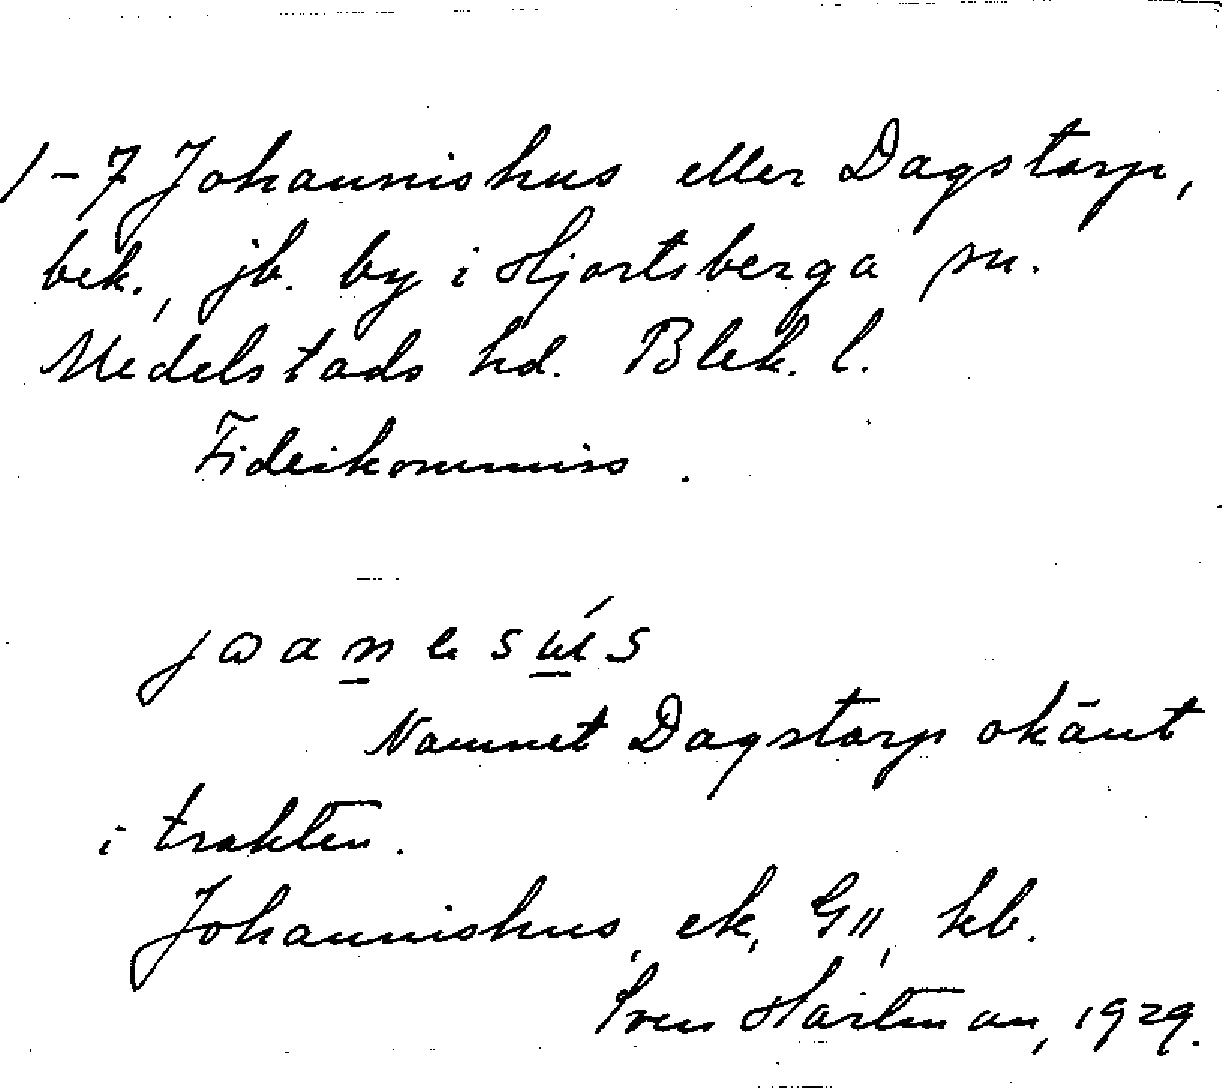 1-7 Johannishus eller Dagstorp,
bek., jb. by i Hjortsberga sn.
Medelstads hd. Blek. l.
Fideikommiss.
Namnet Dagstorp okänt
i trakten.
Johannishus, ek, G11, kb.
Sven Hartman, 1929.